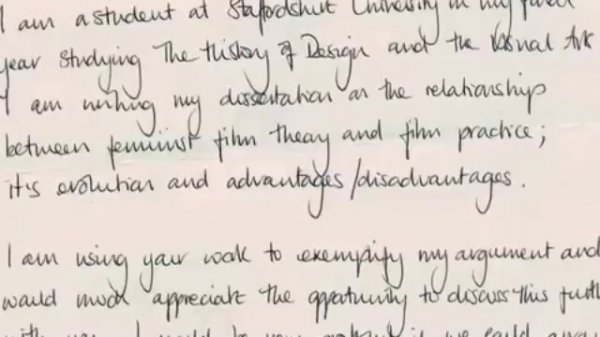 I am a student at Staffordshire University in my final
year studying The History of Design and the Visual Arts
I am writing my dissertation on the relationship
between feminist film theory and film practice;
it's evolution and advantages/disadvantages.
I am using your work to exemplify my argument and
would much appreciate the opportunity to discuss this furth
with you. I would be very